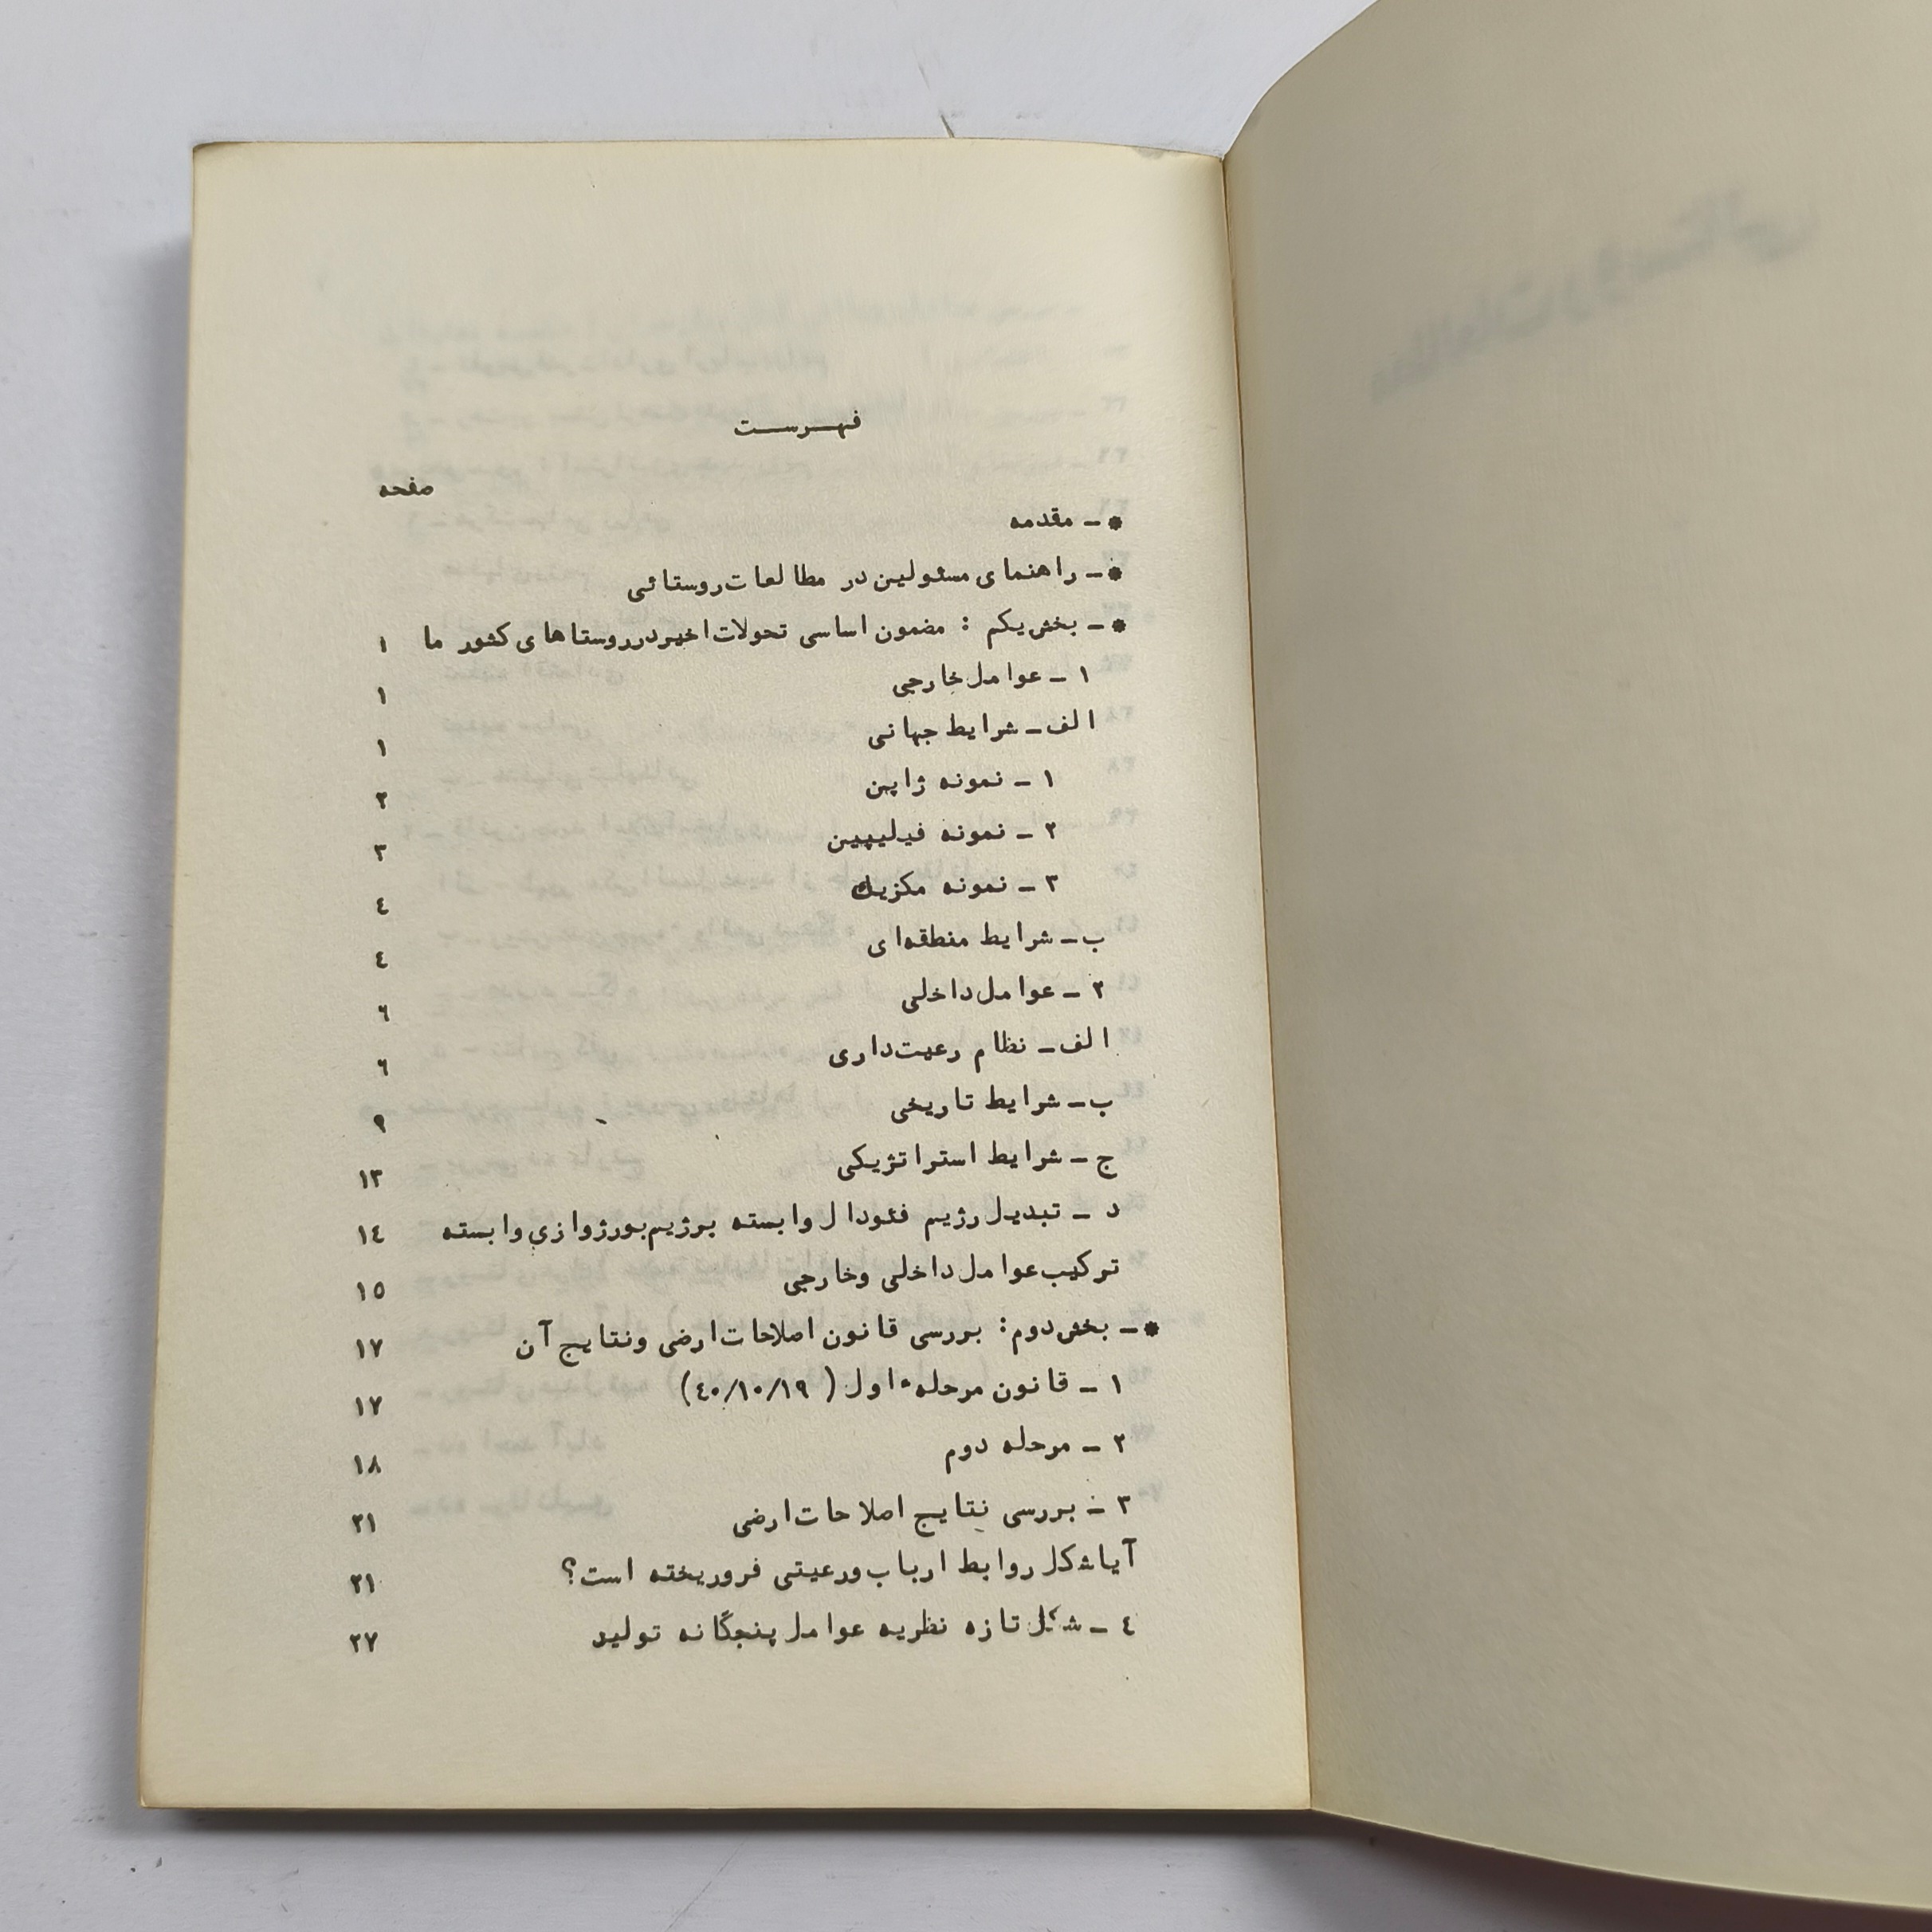 فهرست
صفحه
* - مقدمه
* - راهنمای مسئولین در مطالعات روستائی
* - بخش یکم : مضمون اساسی تحولات اخیر در روستاهای کشور ما ۱
۱ - عوامل خارجی ۱
الف - شرایط جهانی ۱
۱ - نمونه ژاپن ۲
۲ - نمونه فیلیپین ۳
۳ - نمونه مکزیك ٤
ب - شرایط منطقه‌ای ٤
۲ - عوامل داخلی ٦
الف - نظام رعیت‌داری ٦
ب - شرایط تاریخی ۹
ج - شرایط استراتژیکی ۱۳
د - تبدیل رژیم فئودال وابسته برژیم بورژوازی وابسته ۱٤
ترکیب عوامل داخلی و خارجی ۱٥
* - بخش دوم : بررسی قانون اصلاحات ارضی و نتایج آن ۱۷
۱ - قانون مرحلهٔ اول ( ٤۰/۱۰/۱۹) ۱۷
۲ - مرحله دوم ۱۸
۳ - بررسی نتایج اصلاحات ارضی ۲۱
آیا شکل روابط ارباب و رعیتی فروریخته است؟ ۲۱
٤ - شکل تازه نظریه عوامل پنجگانه تولید ۲۷